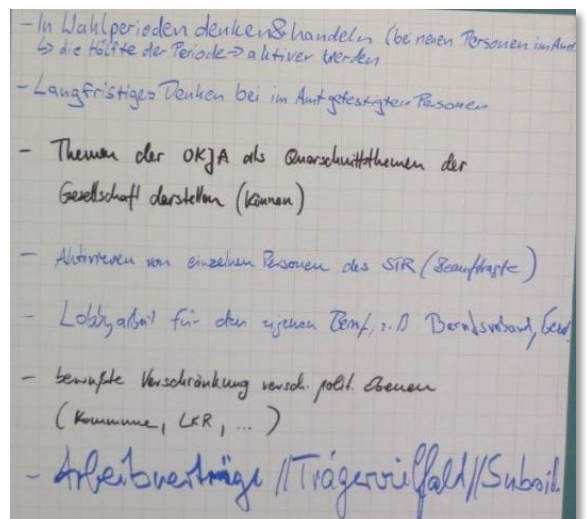 - In Wahlperioden denken & handeln (bei neuen Personen im Amt
↳ die Hälfte der Periode → aktiver werden
- Langfristiges Denken bei im Amt gefestigten Personen
- Themen der OKJA als Querschnittsthemen der
Gesellschaft darstellen (können)
- Aktivieren von einzelnen Personen des STR (Beauftragte)
- Lobbyarbeit für den eigenen Beruf, z.B Berufsverband, Gew.
- bewußte Verschränkung versch. polit. Ebenen
(Kommune, LKR, ...)
- Arbeitsverträge // Trägervielfald // Subsid.